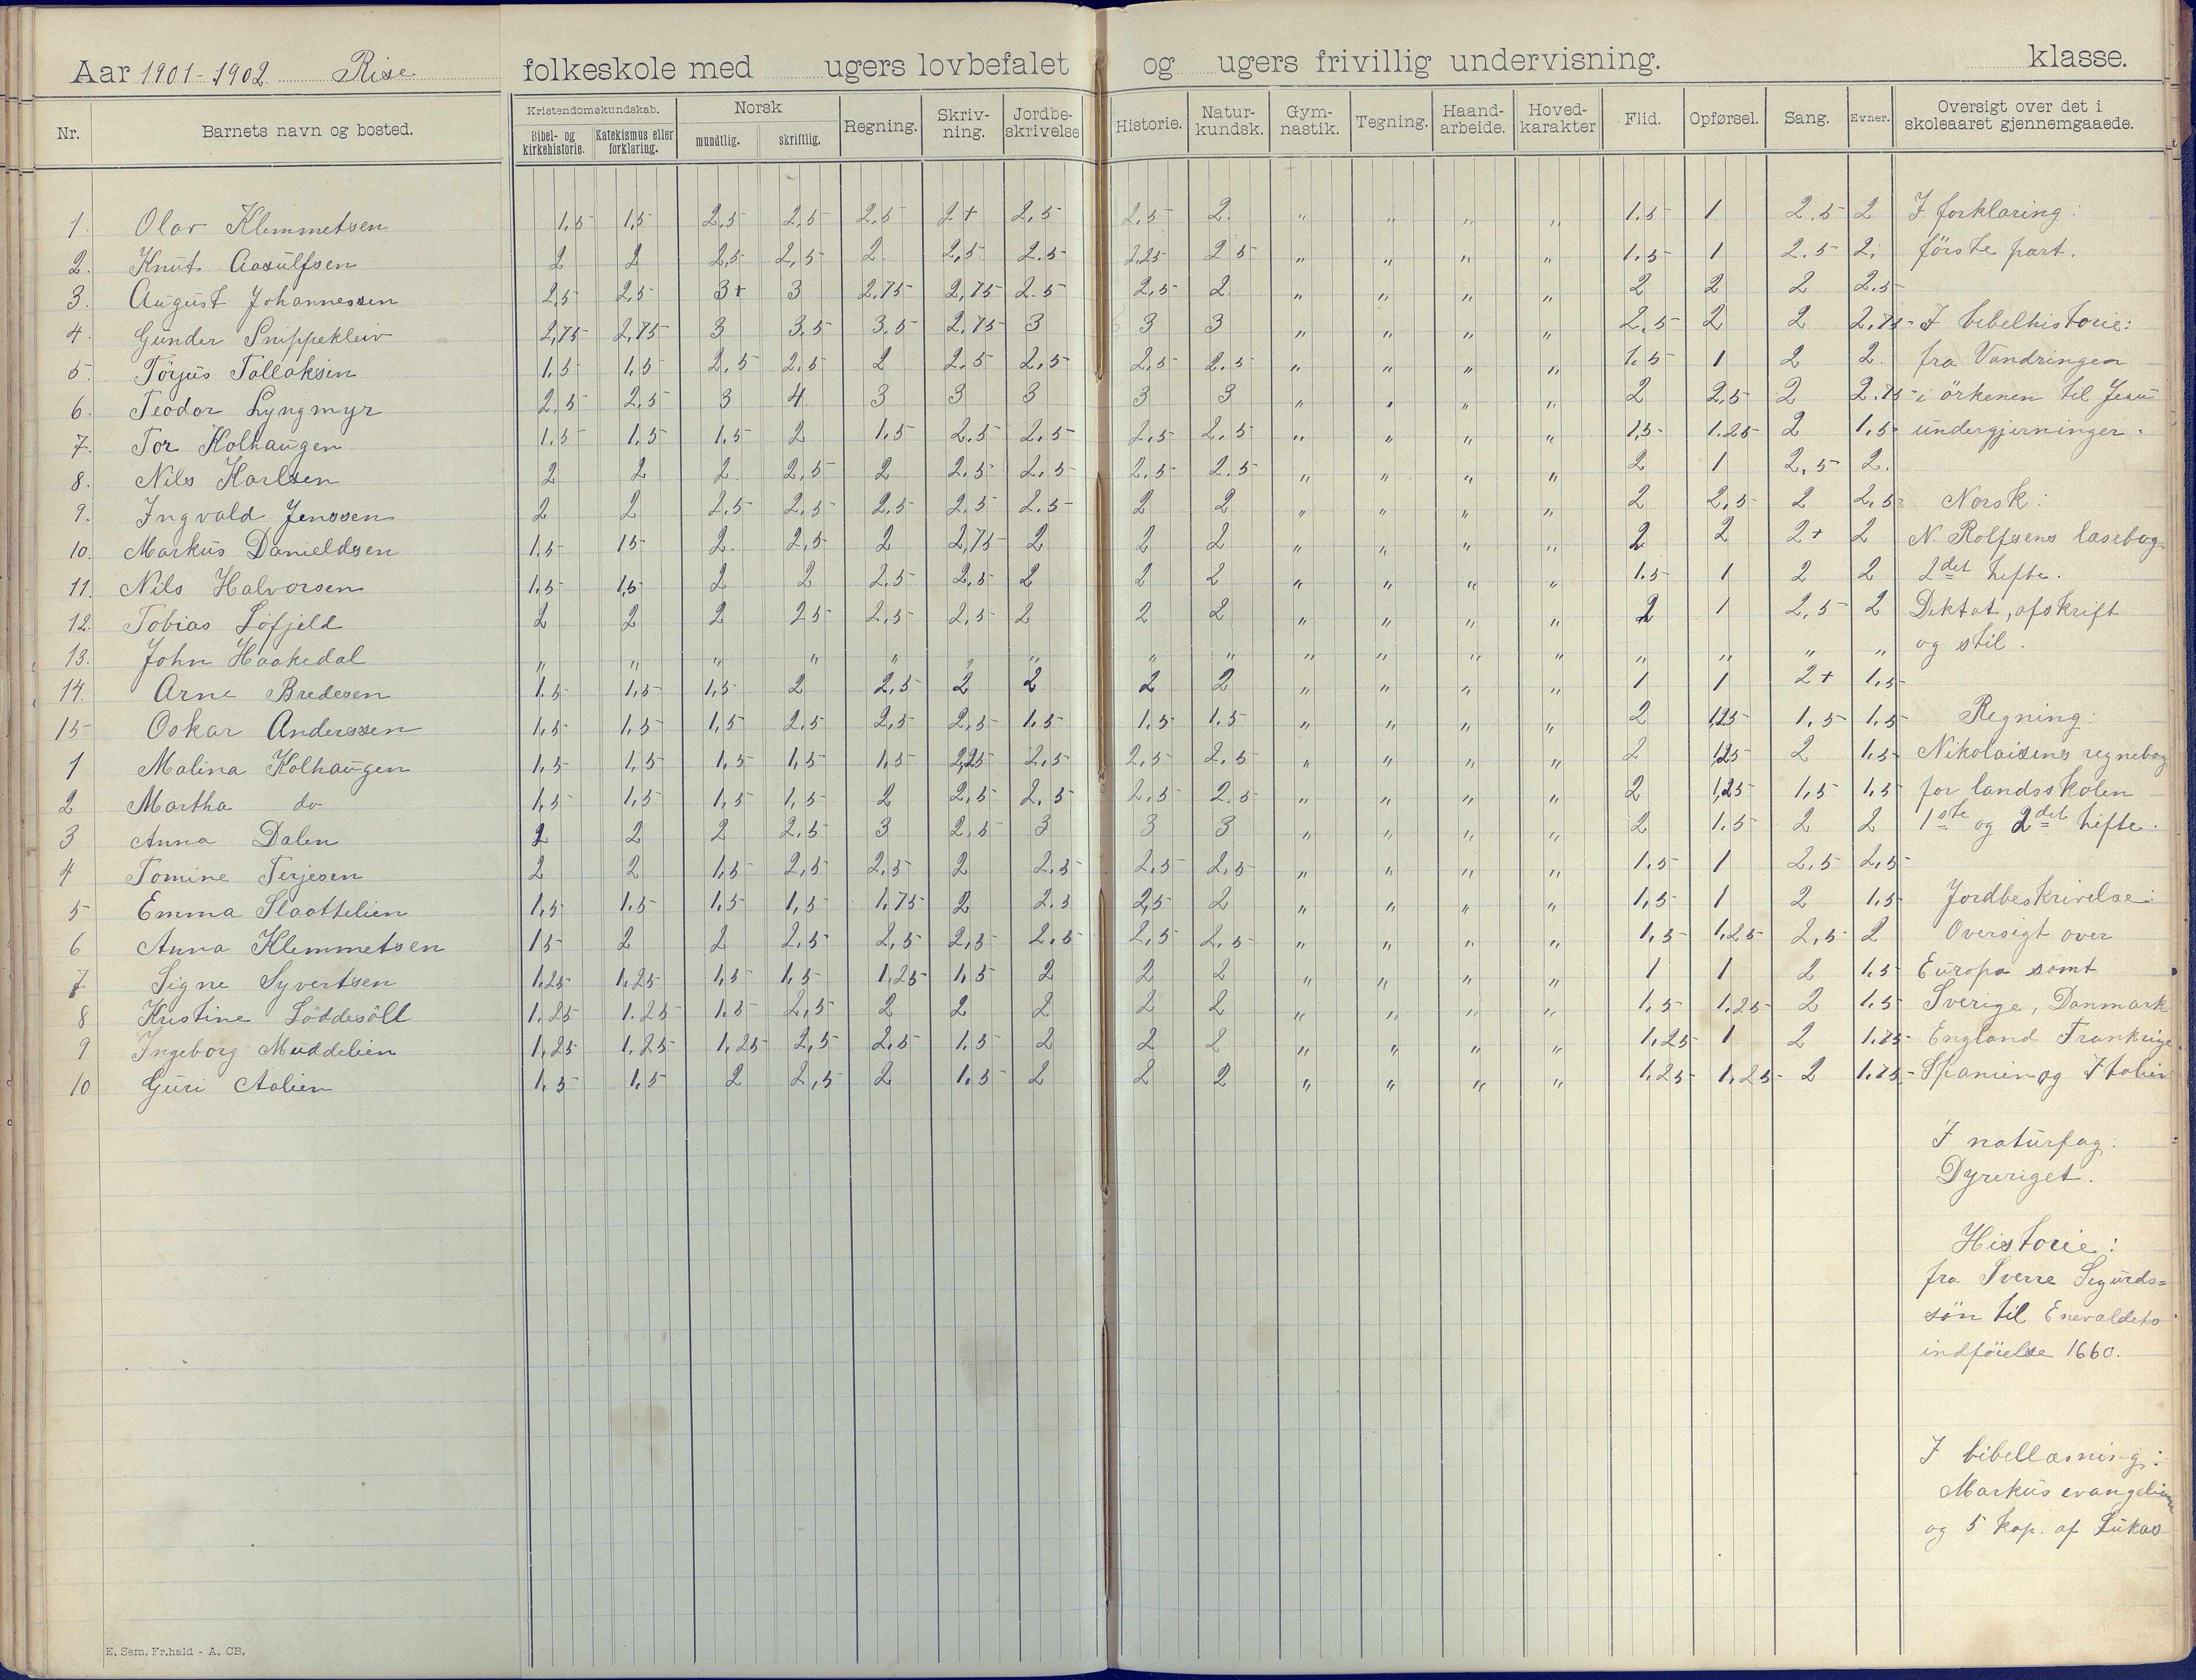 Aar 1901-1902 Rise folkeskole med ugers lovbefalet og ugers frivillig undervisning. klasse.
Nr. Barnets navn og bosted. Kristendomskundskab. Bibel- og kirkehistorie. Katekismus eller forklaring. Norsk mundtlig. skriftlig. Regning. Skriv-ning. Jordbe-skrivelse Historie. Natur-kundsk. Gym-nastik. Tegning. Haand-arbeide. Hoved-karakter Flid. Opførsel. Sang. Evner. Oversigt over det i skoleaaret gjennemgaaede.
1. Olav Klemmetsen 1,5 1,5 2,5 2,5 2,5 2+ 2,5 2,5 2. " " " " 1.5 1 2.5 2 I forklaring:
2. Knut Aasulfsen 2 2 2,5 2,5 2. 2,5 2.5 2,25 2 5 " " " " 1.5 1 2.5 2. förste part.
3. August Johannessen 2,5 2,5 3+ 3 2.75 2,75 2.5 2,5 2. " " " " 2 2 2 2.5
4. Gunder Snippekleiv 2,75 2,75 3 3.5 3.5 2.75 3 3 3 " " " " 2,5 2 2 2.75 I bibelhistorie:
5. Törjus Tallaksen 1.5 1,5 2,5 2,5 2 2.5 2,5 2,5 2.5 " " " " 1.5 1 2 2. fra Vandringen
6. Teodor Lyngmyr 2,5 2,5 3 4 3 3 3 3 3 " " " " 2 2,5 2 2.75 i örkenen til Jesu
7. Tor Kolhaugen 1.5 1.5 1.5 2 1.5 2.5 2,5 2.5 2.5 " " " " 1,5 1.25 2 1.5 undergjerninger.
8. Nils Karlsen 2 2 2 2,5 2 2.5 2.5 2.5 2.5 " " " " 2 1 2,5 2.
9. Ingvald Jenssen 2 2 2.5 2.5 2.5 2.5 2.5 2 2 " " " " 2 2,5 2 2,5 Norsk:
10. Markus Danieldsen 1,5 15 2. 2,5 2 2,75 2 2 2 " " " " 2 2 2+ 2 N. Rolfsens læsebog
11. Nils Halvorsen 1.5 1,5 2 2 2.5 2,5 2 2 2 " " " " 1.5 1 2 2 2det hefte.
12. Tobias Löfjeld 2 2 2 25 2,5 2,5 2 2 2 " " " " 2 1 2,5 2 Diktat, afskrift
13. John Haakedal " " " " " " " " " " " " " " " " " og stil.
14. Arne Bredesen 1.5 1,5 1,5 2 2,5 2 2 2 2 " " " " 1 1 2+ 1,5
15 Oskar Anderssen 1,5 1,5 1,5 2,5 2,5 2,5 1.5 1,5 1.5 " " " " 2 1,25 1,5 1,5 Regning:
1 Malina Kolhaugen 1,5 1,5 1,5 1,5 1,5 2,25 2.5 2,5 2.5 " " " " 2 1,25 2 1.5 Nikolaisens regnebog
2 Martha do 1,5 1,5 1,5 1,5 2 2,5 2.5 2,5 2.5 " " " " 2 1,25 1,5 1,5 for landsskolen
3 Anna Dalen 2 2 2 2,5 3 2,5 3 3 3 " " " " 2 1.5 2 2 1ste og 2det hefte.
4 Tomine Terjesen 2 2 1,5 2,5 2,5 2 2.5 2,5 2,5 " " " " 1.5 1 2,5 2,5
5 Emma Slaattelien 1,5 1.5 1,5 1,5 1,75 2 2.5 2,5 2 " " " " 1,5 1 2 1,5 Jordbeskrivelse:
6 Anna Klemmetsen 15 2 2 2,5 2,5 2,5 2.5 2,5 2,5 " " " " 1,5 1,25 2,5 2 Oversigt over
7 Signe Syvertsen 1,25 1,25 1,5 1,5 1,25 1,5 2 2 2 " " " " 1 1 2 1.5 Europa samt
8 Kristine Löddesöll 1.25 1.25 1.5 2,5 2 2 2 2 2 " " " " 1,5 1,25 2 1.5 Sverige, Danmark
9 Ingeborg Muddelien 1,25 1.25 1,25 2,5 2.5 1.5 2 2 2 " " " " 1,25 1 2 1.75 England Frankrige
10 Guri Aalien 1,5 1,5 2 2,5 2 1.5 2 2 2 " " " " 1,25 1,25 2 1.75 Spanien og Italien
I naturfag:
Dyreriget.
Historie:
fra Sverre Sigurds=
sön til Enevaldets
indföielse 1660.
I bibellæsning:
Markus evangelium
og 5 kap. af Lukas
E. Sem, Fr.hald - A. CB.